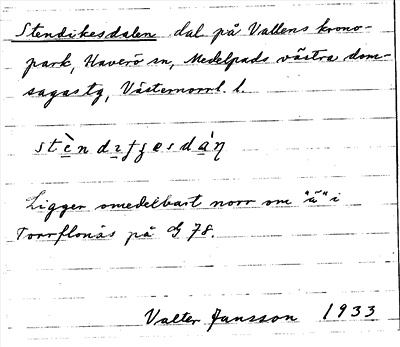 Stendikesdalen dal på Vallens krono-
park, Haverö sn, Medelpads västra dom-
sagas tg, Västernorrl. l.
Ligger omedelbart norr om "å" i
Torrflonäs på G 78.
Valter Jansson 1933